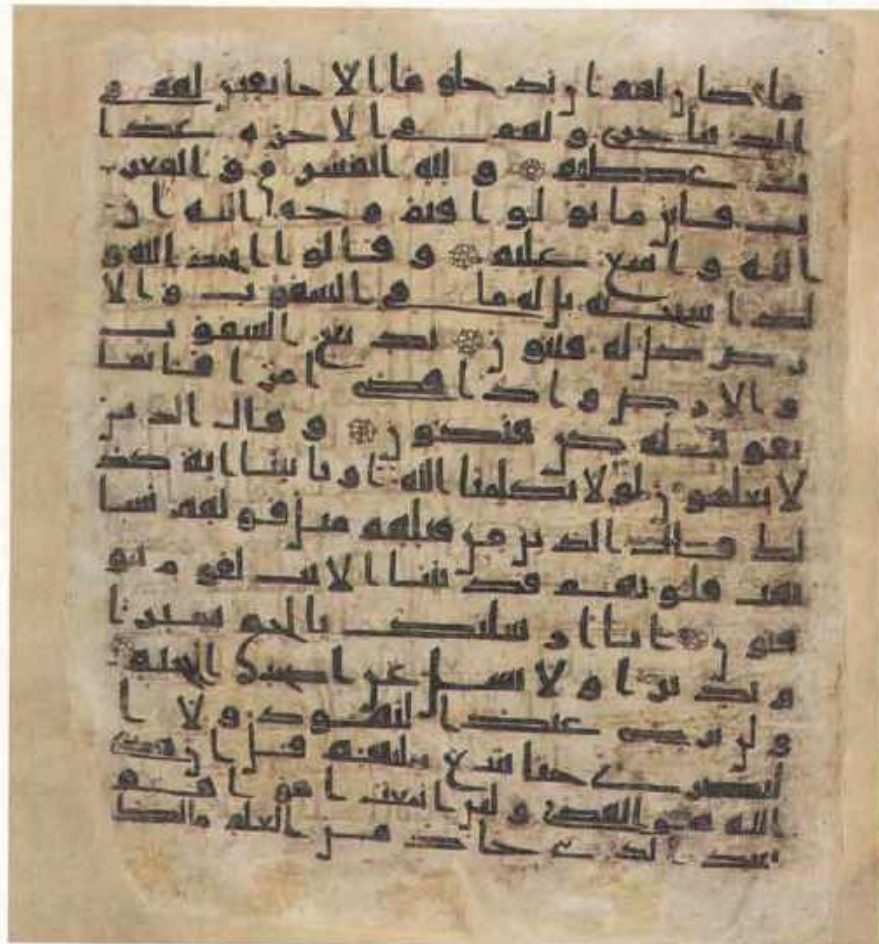 ما كان لهم ان يدخلوها الا خايفين لهم في
الدنيا خزي و لهم في الاخرة عذا
ب عظيم و لله المشرق و المغر
ب فاينما تولوا فثم وجه الله ان
الله واسع عليم و قالوا اتخذ الله و
لدا سبحنه بل له ما في السموت و الا
رض كل له قنتون بديع السموت
و الارض و اذا قضى امرا فانما
يقول له كن فيكون و قال الذين
لا يعلمون لولا يكلمنا الله او تاتينا اية كذ
لك قال الذين من قبلهم مثل قولهم تشا
بهت قلوبهم قد بينا الايت لقوم يو
قنون انا ارسلنك بالحق بشيرا
و نذيرا و لا تسل عن اصحب الجحيم
و لن ترضى عنك اليهود و لا ا
لنصرى حتا تتبع ملتهم قل ان هدى
الله هو الهدى و لين اتبعت اهواهم
بعد الذي جاك من العلم ما لك